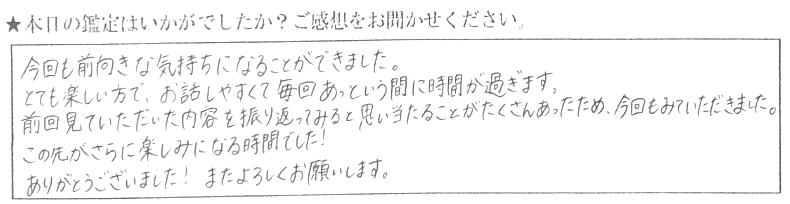 ★本日の鑑定はいかがでしたか?ご感想をお聞かせください。
今回も前向きな気持ちになることができました。
とても楽しい方で、お話しやすくて毎回あっという間に時間が過ぎます。
前回見ていただいた内容を振り返ってみると思い当たることがたくさんあったため、今回もみていただきました。
この先がさらに楽しみになる時間でした!
ありがとうございました! またよろしくお願いします。